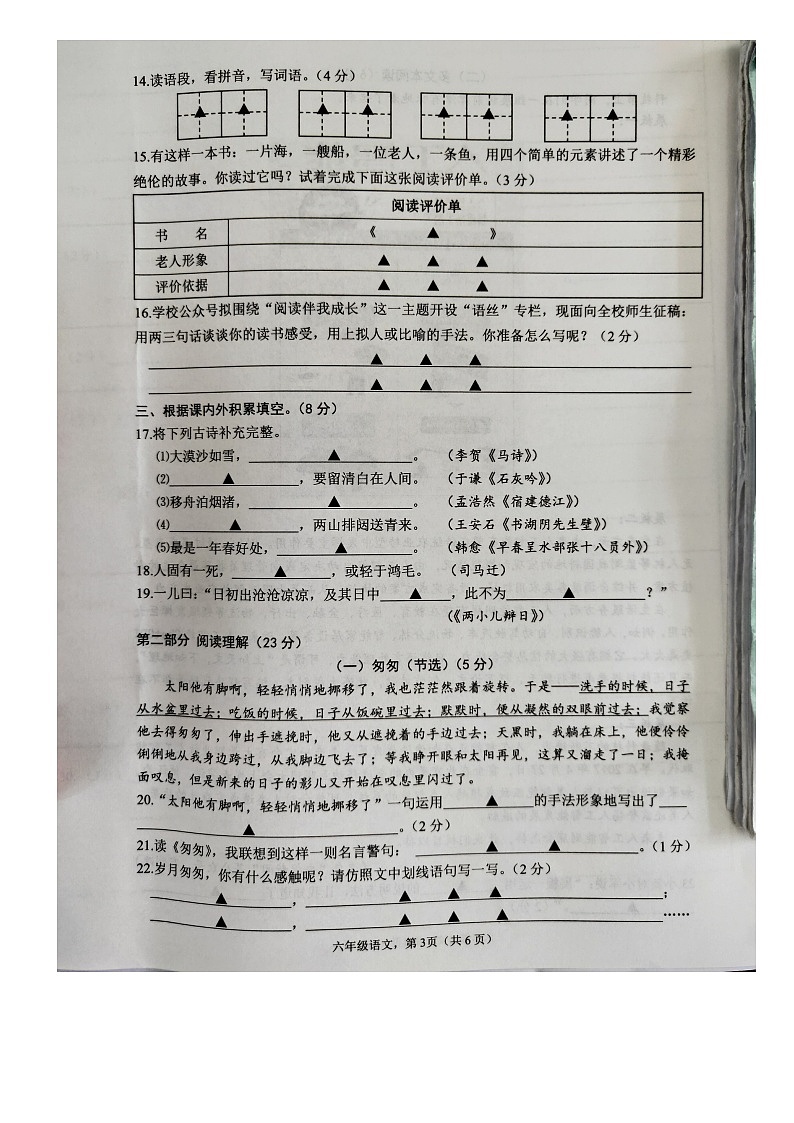 14.读语段，看拼音，写词语。（4 分）
▲ ▲ ▲ ▲ ▲ ▲ ▲ ▲
15.有这样一本书：一片海，一艘船，一位老人，一条鱼，用四个简单的元素讲述了一个精彩
绝伦的故事。你读过它吗？试着完成下面这张阅读评价单。（3 分）
阅读评价单
书 名 《 ▲ 》
老人形象 ▲ ▲ ▲
评价依据 ▲ ▲ ▲
16.学校公众号拟围绕“阅读伴我成长”这一主题开设“语丝”专栏，现面向全校师生征稿：
用两三句话谈谈你的读书感受，用上拟人或比喻的手法。你准备怎么写呢？（2 分）
▲ ▲ ▲
▲ ▲ ▲
三、根据课内外积累填空。（8 分）
17.将下列古诗补充完整。
⑴大漠沙如雪，____▲____。 （李贺《马诗》）
⑵____▲____，要留清白在人间。 （于谦《石灰吟》）
⑶移舟泊烟渚，____▲____。 （孟浩然《宿建德江》）
⑷____▲____，两山排闼送青来。 （王安石《书湖阴先生壁》）
⑸最是一年春好处，____▲____。 （韩愈《早春呈水部张十八员外》）
18.人固有一死，____▲____，或轻于鸿毛。 （司马迁）
19.一儿曰：“日初出沧沧凉凉，及其日中____▲____，此不为____▲____？”
（《两小儿辩日》）
第二部分 阅读理解（23 分）
（一）匆匆（节选）（5 分）
太阳他有脚啊，轻轻悄悄地挪移了，我也茫茫然跟着旋转。于是——洗手的时候，日子
从水盆里过去；吃饭的时候，日子从饭碗里过去；默默时，便从凝然的双眼前过去；我觉察
他去得匆匆了，伸出手遮挽时，他又从遮挽着的手边过去；天黑时，我躺在床上，他便伶伶
俐俐地从我身边跨过，从我脚边飞去了；等我睁开眼和太阳再见，这算又溜走了一日；我掩
面叹息，但是新来的日子的影儿又开始在叹息里闪过了。
20.“太阳他有脚啊，轻轻悄悄地挪移了”一句运用____▲____的手法形象地写出了____
____▲____。（2 分）
21.读《匆匆》，我联想到这样一则名言警句： ____▲ ▲____。（1 分）
22.岁月匆匆，你有什么感触呢？请仿照文中划线语句写一写。（2 分）
____▲____，____▲ ▲ ▲____；
____▲____，____▲ ▲ ▲____……
六年级语文，第 3页（共 6 页）